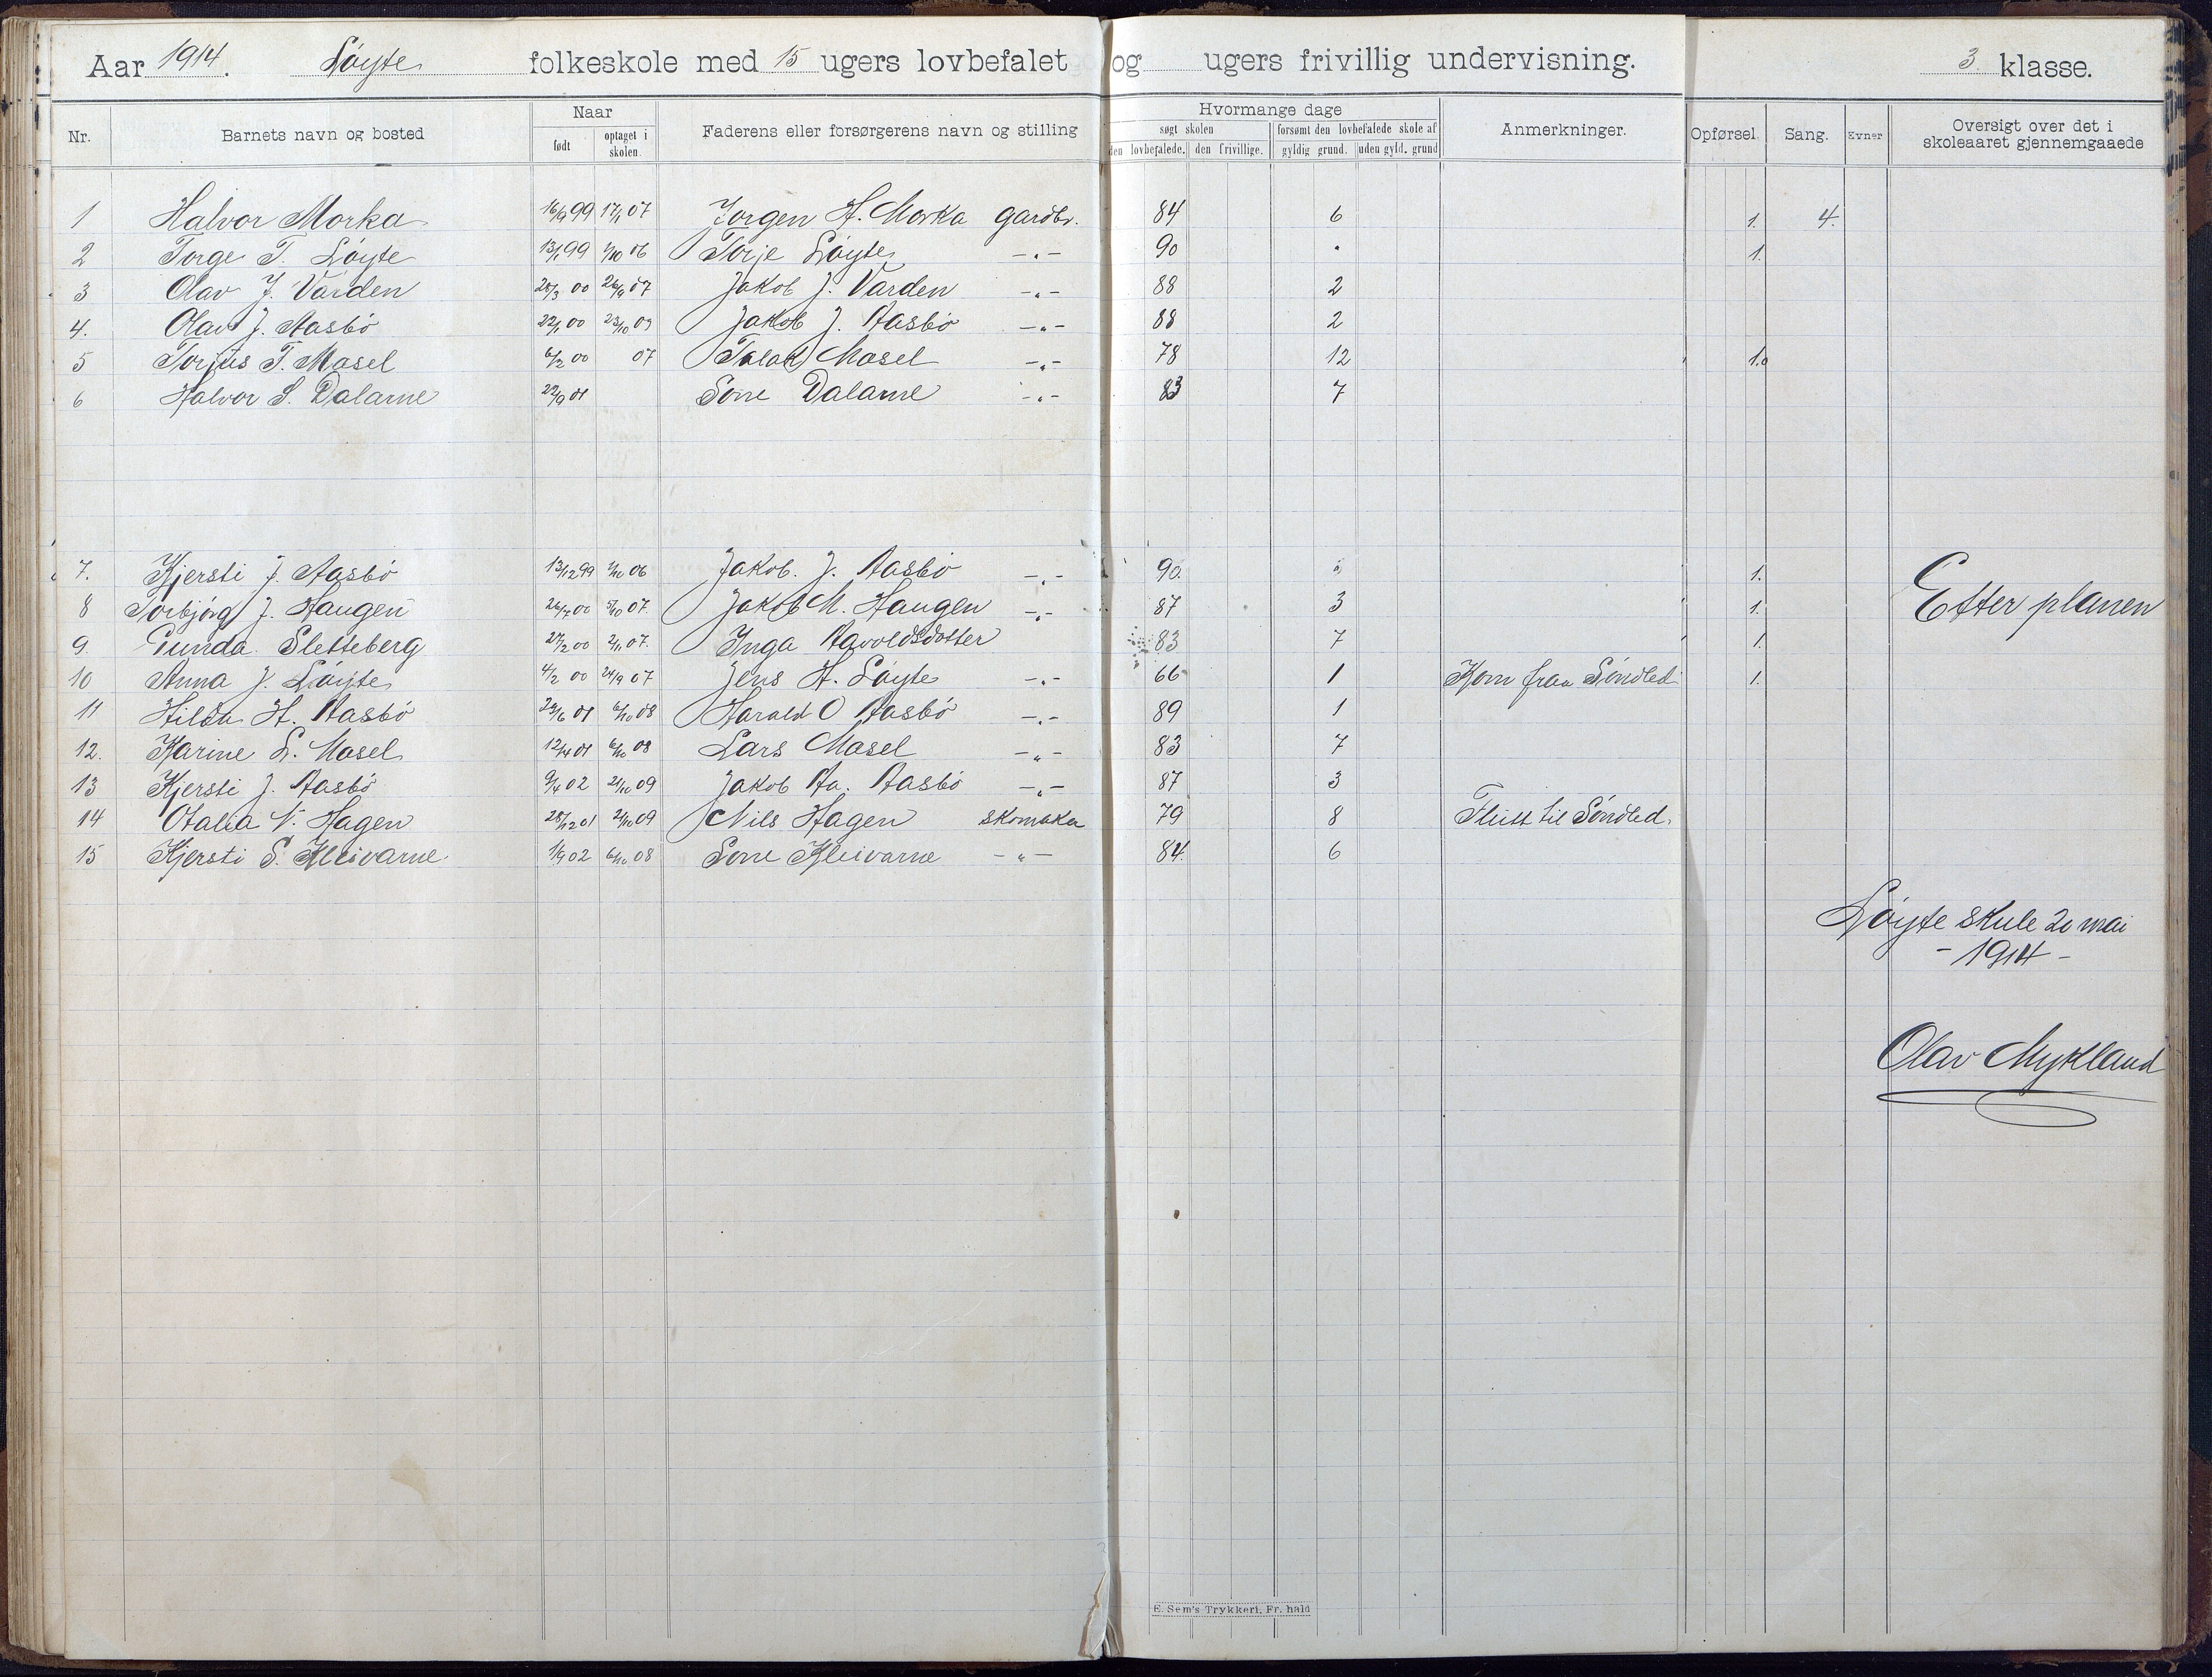 Aar 1914. Løyte folkeskole med 15 ugers lovbefalet og ugers frivillig undervisning. 3. klasse.
Nr. Barnets navn og bosted Naar født optaget i skolen. Faderens eller forsørgerens navn og stilling Hvormange dage søgt skolen den lovbefalede. den frivillige. forsømt den lovbefalede skole af gyldig grund. uden gyld. grund Anmerkninger. Opførsel. Sang. Evner Oversigt over det i skoleaaret gjennemgaaede
1 Halvor Morka 16/9 99 17/1 07 Jørgen H. Morka gardbr. 84 6 1. 4.
2 Torge T. Løyte 13/1 99 1/10 06 Torje Løyte -„- 90 1.
3 Olav J. Varden 28/3 00 26/9 07 Jakob J. Varden -„- 88 2
4. Olav J. Aasbø 22/1 00 23/10 09 Jakob J. Aasbø -„- 88 2
5 Torjus T. Masel 6/2 00 07 Talak Masel -„- 78 12 1.
6 Halvor S. Dalarne 22/9 01 Sone Dalarne -„- 83 7
7. Kjersti J. Aasbø 13/12 99 1/10 06 Jakob. J. Aasbø -„- 90. 1.
8 Torbjørg J. Haugen 26/7 00 5/10 07. Jakob M. Haugen -„- 87 3 1. Etter planen
9. Gunda Sletteberg 27/2 00 2/11 07. Inga Aavoldsdotter 83 7 1.
10 Anna J. Løyte 4/2 00 24/9 07 Jens H. Løyte -„- 66 1 Kom fraa Søndled 1.
11 Hilda H. Aasbø 29/6 01 6/10 08 Harald O Aasbø -„- 89 1
12. Karine L. Masel 12/4 01 6/10 08 Lars Masel -„- 83 7
13 Kjersti J. Aasbø 9/4 02 21/10 09 Jakob Aa. Aasbø -„- 87 3
14 Otalia N. Hagen 28/12 01 21/10 09 Nils Hagen skomaka 79 8 Flutt til Søndled.
15 Kjersti S. Kleivarne. 1/9 02 6/10 08 Sone Kleivarne -„- 84. 6
Løyte skule 20 mai
- 1914 -
Olav Mykland
E. Sem's Trykkeri, Fr. hald